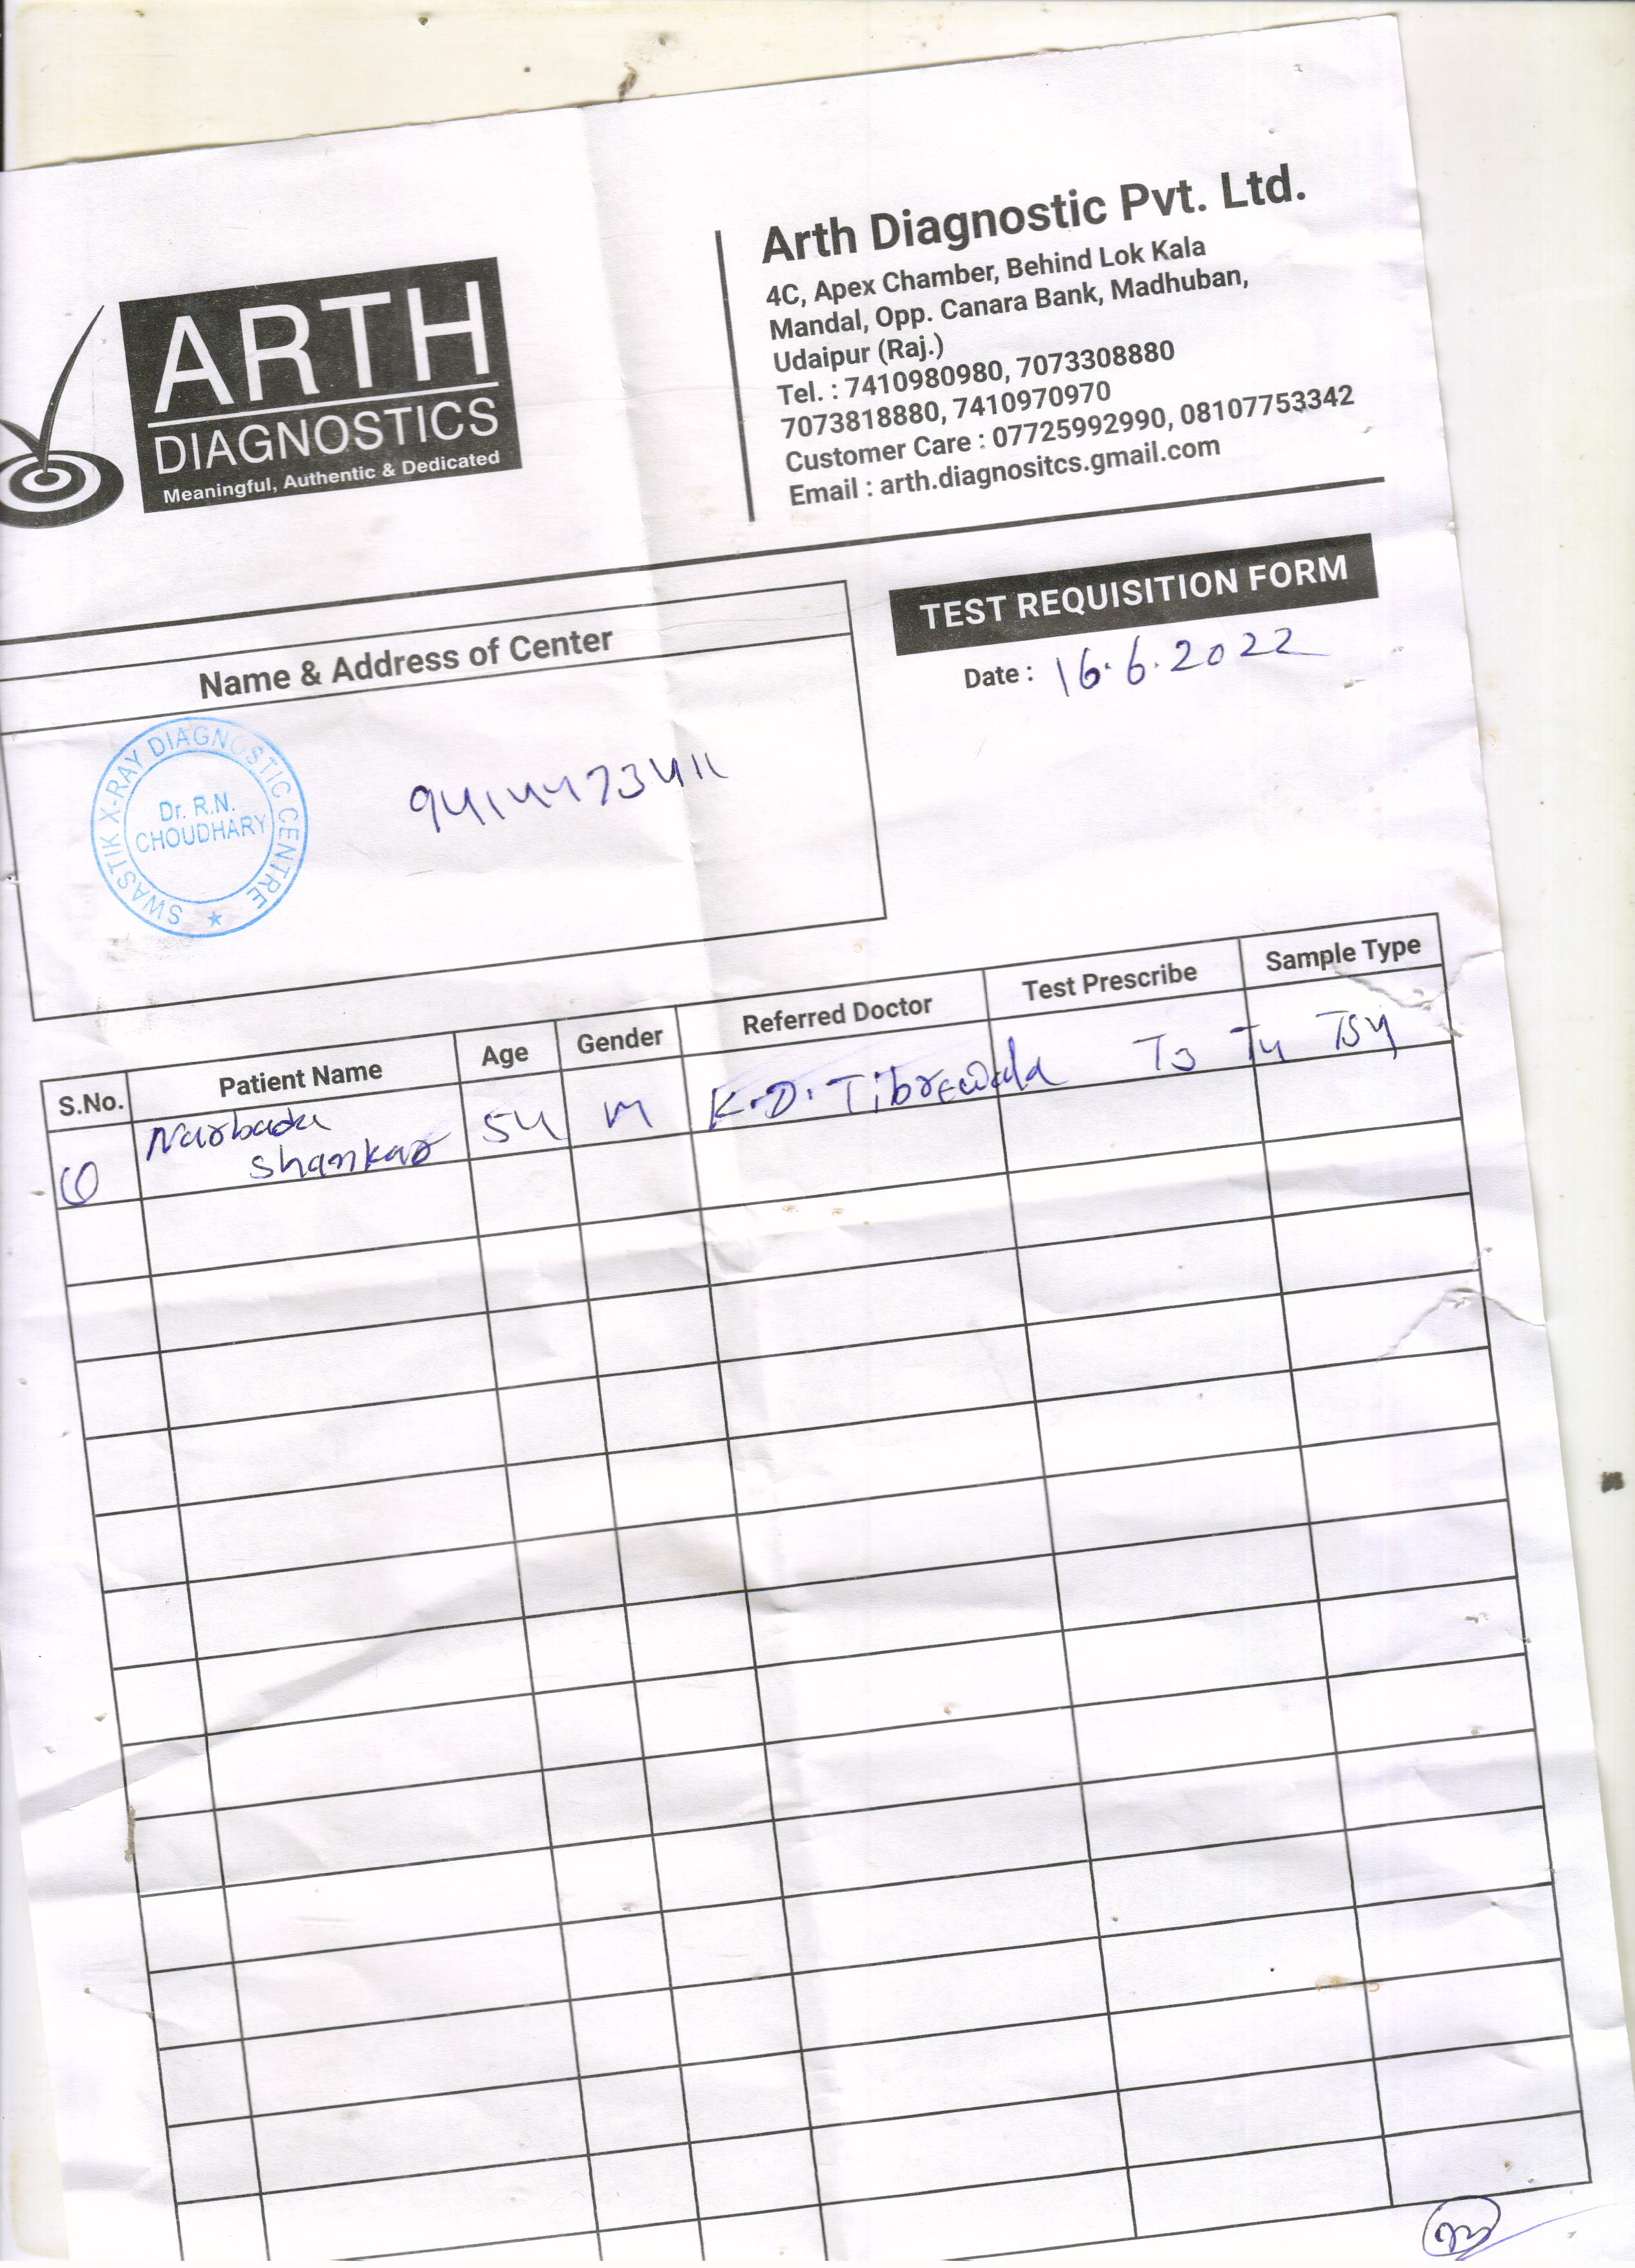 ARTH
DIAGNOSTICS
Meaningful, Authentic & Dedicated
Arth Diagnostic Pvt. Ltd.
4C, Apex Chamber, Behind Lok Kala
Mandal, Opp. Canara Bank, Madhuban,
Udaipur (Raj.)
Tel. : 7410980980, 7073308880
7073818880, 7410970970
Customer Care : 07725992990, 08107753342
Email : arth.diagnositcs.gmail.com
TEST REQUISITION FORM
Date : 16.6.2022
Name & Address of Center
SWASTIK X-RAY DIAGNOSTIC CENTRE
Dr. R.N.
CHOUDHARY
9414473411
S.No. Patient Name Age Gender Referred Doctor Test Prescribe Sample Type
Narbada
Shankar 54 M K.D. Tibrewala T3 T4 TSH